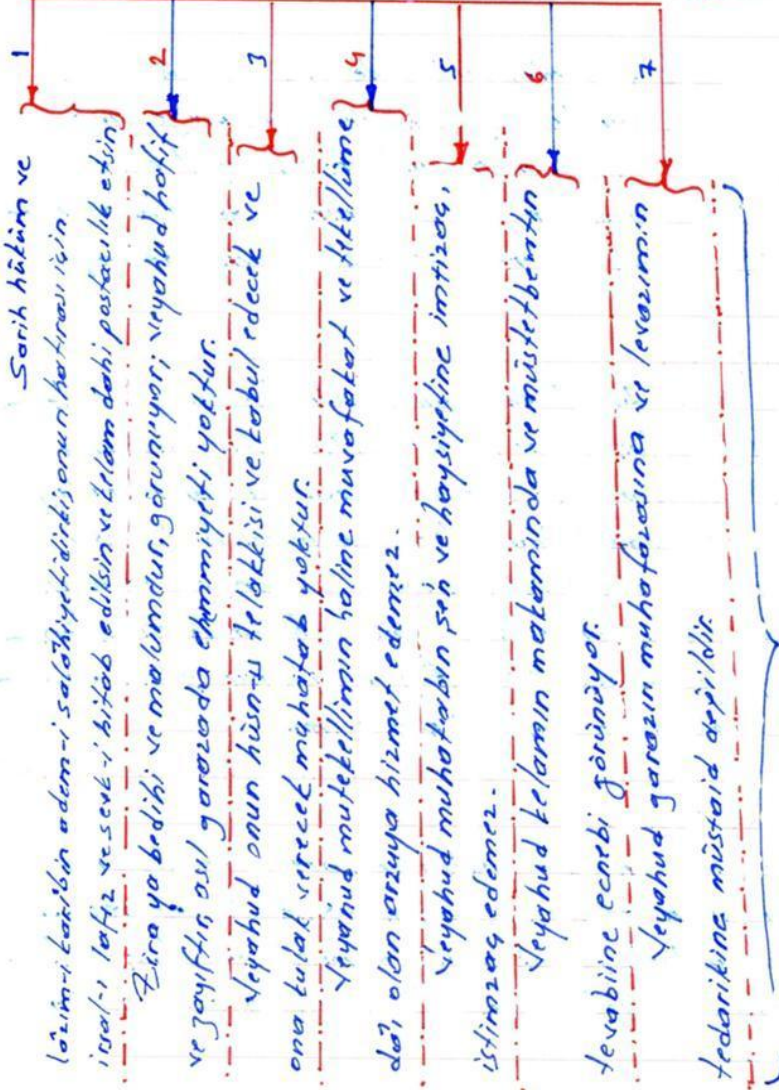 1
Sarih hüküm ve
lâzım-ı karibin adem-i salâhiyetidir ki; onun hatırası için
irsal-ı lafız ve sevk-i hitab edilsin ve kelam dahi postacılık etsin.
2
Zira ya bedihi ve malumdur, görünüyor; veyahud hafif
ve zayıftır, asıl garazada ehemmiyeti yoktur.
3
Veyahud onun hüsn-ü telakkisi ve kabul edecek ve
ona kulak verecek muhatab yoktur.
4
Veyahud mütekellimin haline muvafakat ve tekellüme
dâi olan arzuya hizmet edemez.
5
Veyahud muhatabın şen ve haysiyetine imtizaç,
istimzaç edemez.
6
Veyahud kelamın makamında ve müstetbeatın
tevabiine ecnebi görünüyor.
7
Veyahud garazın muhafazasına ve levazımın
tedarikine müstaid değildir.